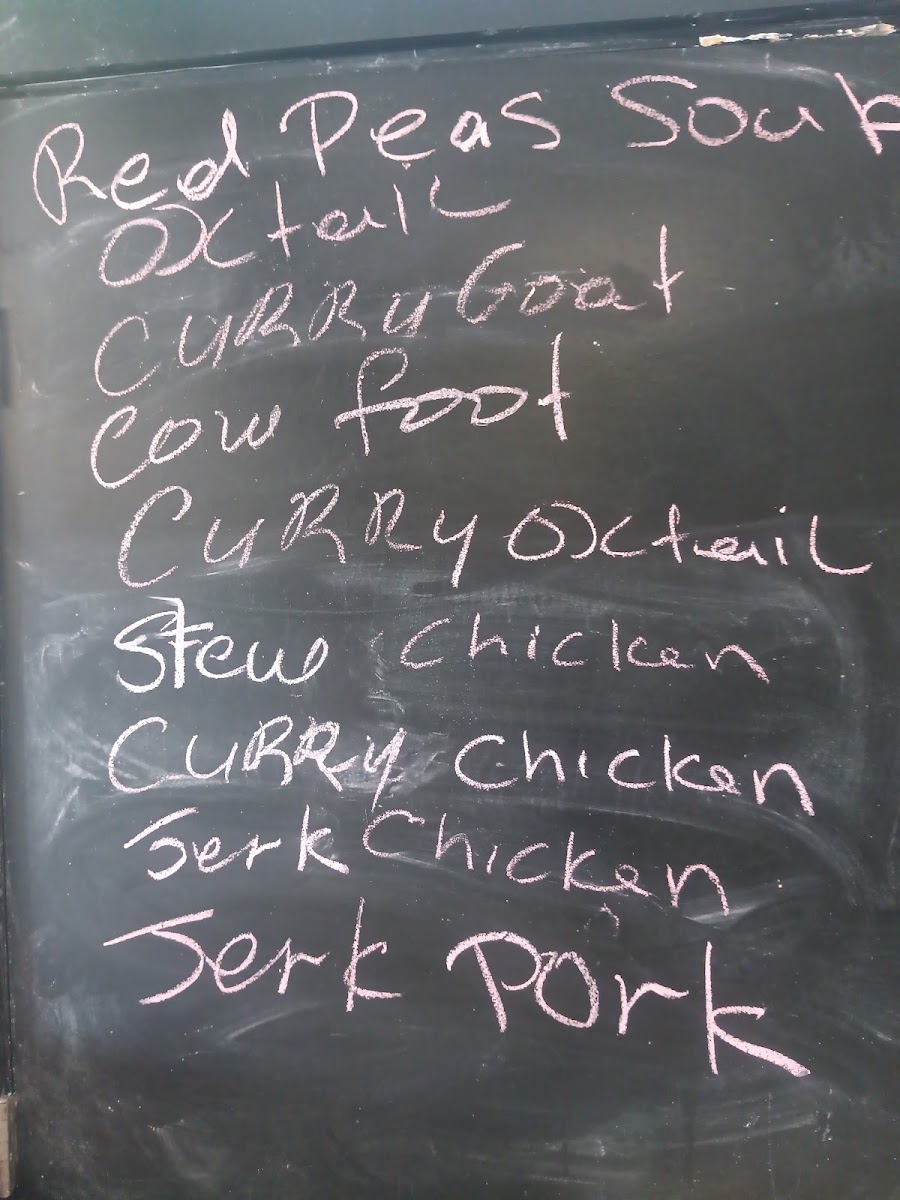 Red Peas Soup
Oxtail
CURRY Goat
Cow foot
CURRY Oxtail
Stew Chicken
CURRY Chicken
Jerk Chicken
Jerk Pork